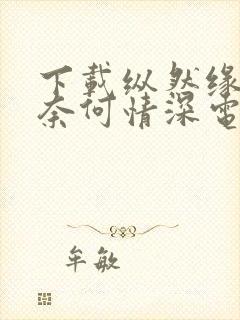 下载纵然缘
奈何情深电
牟敏